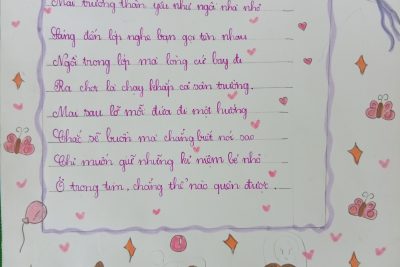 Mái trường thân yêu như ngôi nhà nhỏ
Sáng đến lớp nghe bạn gọi tên nhau
Ngồi trong lớp mà lòng cứ bay đi
Ra chơi là chạy khắp cả sân trường.
Mai sau lỡ mỗi đứa đi một hướng
Chắc sẽ buồn mà chẳng biết nói sao
Chỉ muốn giữ những kỉ niệm bé nhỏ
Ở trong tim, chẳng thể nào quên được.